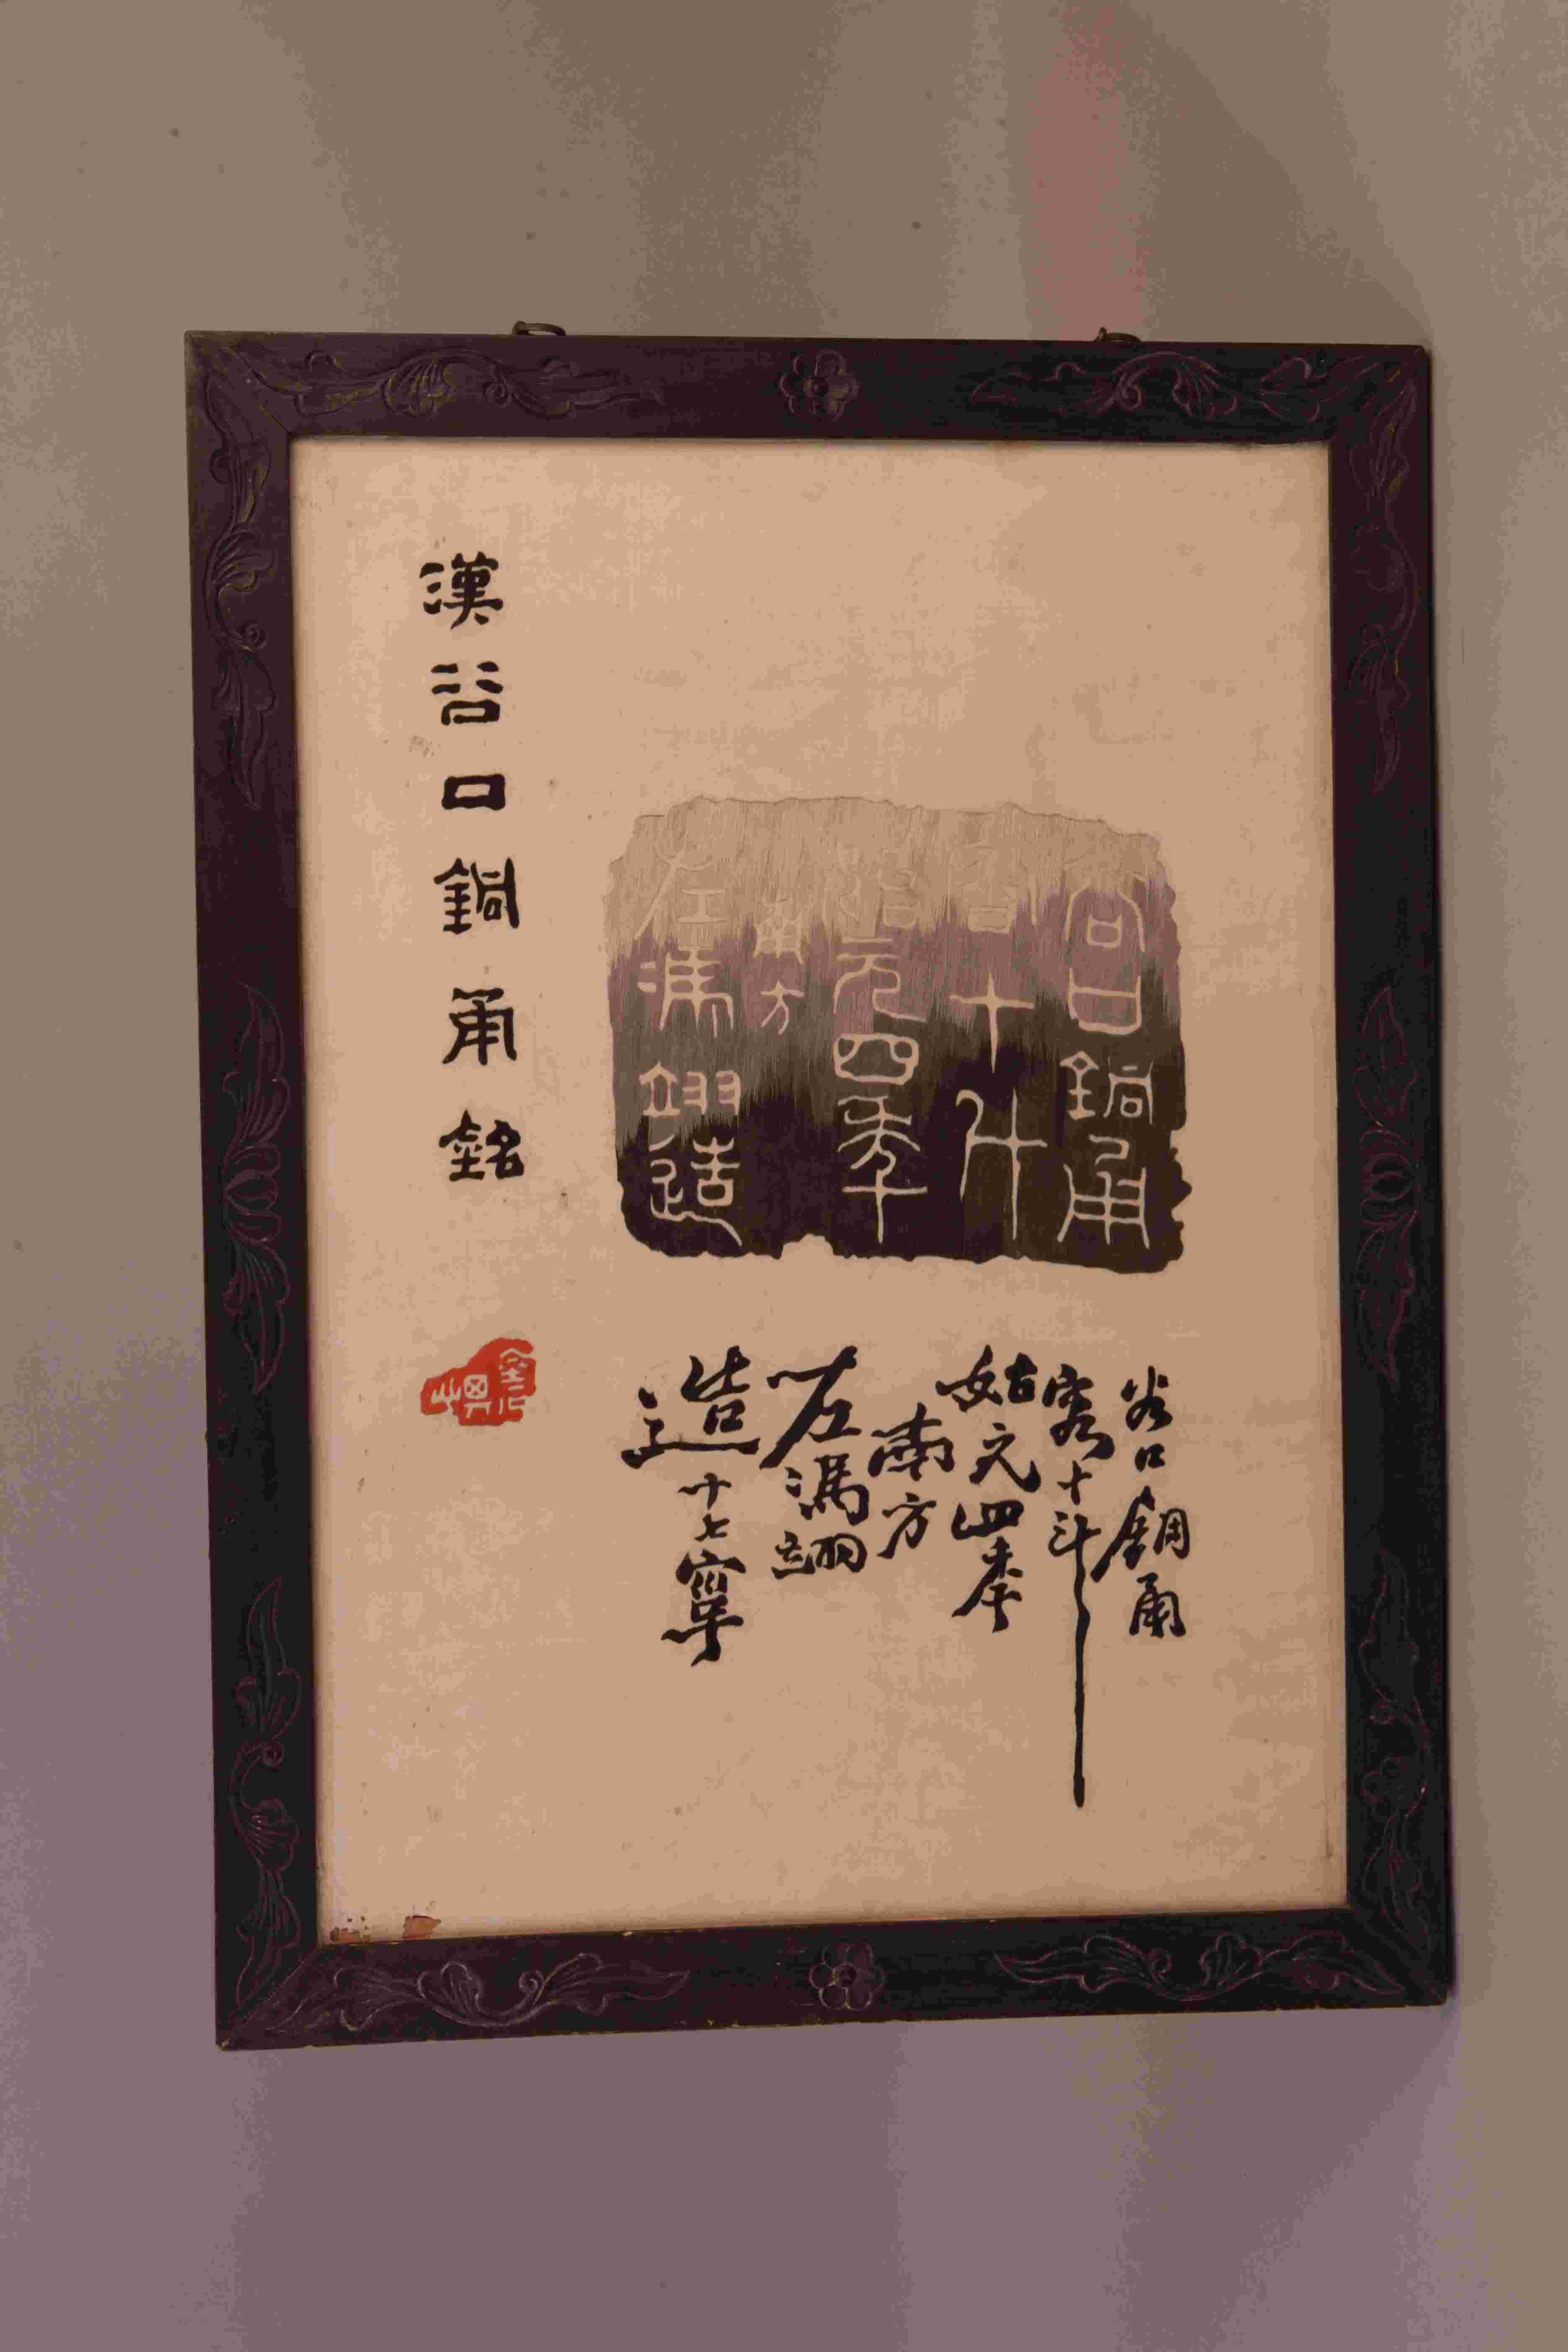 谷口銅甬
容十斗
始元四年
甫方
左馮翊造
谷口銅甬
容十斗
始元四季
甫方
左馮翊
造
漢谷口銅甬銘